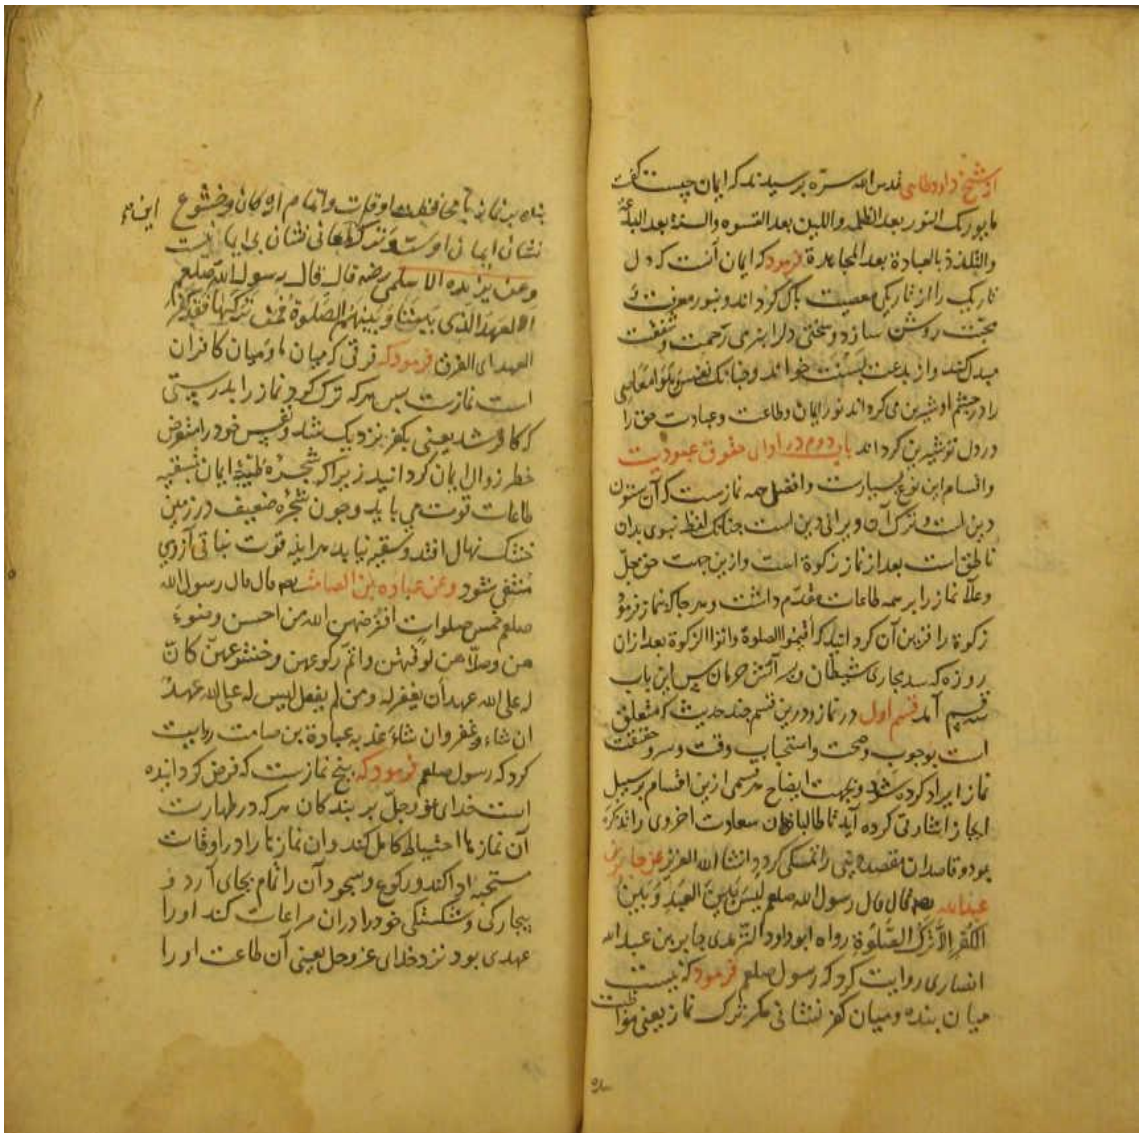 از شیخ داود طایی قدس الله سره پرسیدند که ایمان چیست گفت
ما یورثک النور بعد الظلمه واللین بعد القسوه والسنة بعد البدعة
والتلذذ بالعبادة بعد المجاهدة فرمود که ایمان آنست که دل
تاریک را از تاریکی معصیت پاک کرداند و بنور معرفت و
محبت روشن سازد و سختی دل را بنرمی رحمت و شفقت
مبدل کند و از بدعت بسنت خواند و چنانک نفس معاصی
را در چشم او شیرین می کرداند نور ایمان و طاعت و عبادت حق را
در دل تو شیرین کرداند باب دوم در ادای حقوق عبودیت
و اقسام این نوع بسیارست و افضل همه نمازست که آن ستون
دین است و ترک آن ویرانی دین است چنانک لفظ نبوی بدان
ناطق است بعد از نماز زکوة است و ازین جهت حق جل
وعلا نماز را بر همه طاعات مقدم داشت و هر جا که نماز فرمود
زکوة را قرین آن کردانید که اقیموا الصلوة واتوا الزکوة بعد ازان
روزه که سد مجاری شیطان و آتش حرمان پس این باب
سه قسم آمد قسم اول در نماز و درین قسم چند حدیث که متعلق
است بوجوب و صحت و استحباب وقت و سر و حقیقت
نماز ایراد کرده شد و بجهت ایضاح هر قسمی ازین اقسام بر سبیل
ایجاز اشارتی کرده آید تا طالبان سعادت اخروی را تذکره
بود و قاصدان مقصد دینی را تمسکی کردد انشا الله العزیز عن جابر بن
عبدالله رضه قال قال رسول الله صلعم لیس بین العبد وبین
الکفر الا ترک الصلوة رواه ابوداود الترمذی جابر بن عبدالله
انصاری روایت کرد که رسول صلعم فرمود که نیست
میان بنده و میان کفر نشانی مکر ترک نماز یعنی مواظبت
بنده بر نماز با محافظت اوقات و اتمام ارکان و خشوع
نشان ایمان اوست و ترک معانی نشان بی ایمانیست
وعن بریده الاسلمی رضه قال قال رسول الله صلعم
ان العهد الذی بیننا وبینهم الصلوة فمن ترکها فقد کفر
العهد ای الفرق فرمود که فرقی که میان ما و میان کافران
است نمازست پس هر که ترک کرد نماز را بدرستی
که کافر شد یعنی بکفر نزدیک شد و نفس خود را معرض
خطر زوال ایمان کردانید زیرا که شجره طیبه ایمان بسقیه
طاعات قوت می یابد و چون شجره ضعیف در زمین
خشک نهال افتد و سقیه نیابد هر آینه قوت نباتی از وی
منتفی شود وعن عباده بن الصامت رضه قال قال رسول الله
صلعم خمس صلوات افترضهن الله من احسن وضوء
هن وصلاهن لوقتهن واتم رکوعهن وخشوعهن کان
له علی الله عهد ان یغفر له ومن لم یفعل لیس له علی الله عهد
ان شاء غفر وان شاء عذبه عبادة بن صامت روایت
کرد که رسول صلعم فرمود که پنج نمازست که فرض کردانیده
است خدای عز وجل بر بندکان هر که در طهارت
آن نماز ها احتیاط کامل کند و آن نمازها را در اوقات
مستحبه ادا کند و رکوع و سجود آن را تمام بجای آرد و
بیچارکی و شکستکی خود را دران مراعات کند او را
عهدی بود نزد خدای عز وجل یعنی آن طاعت او را